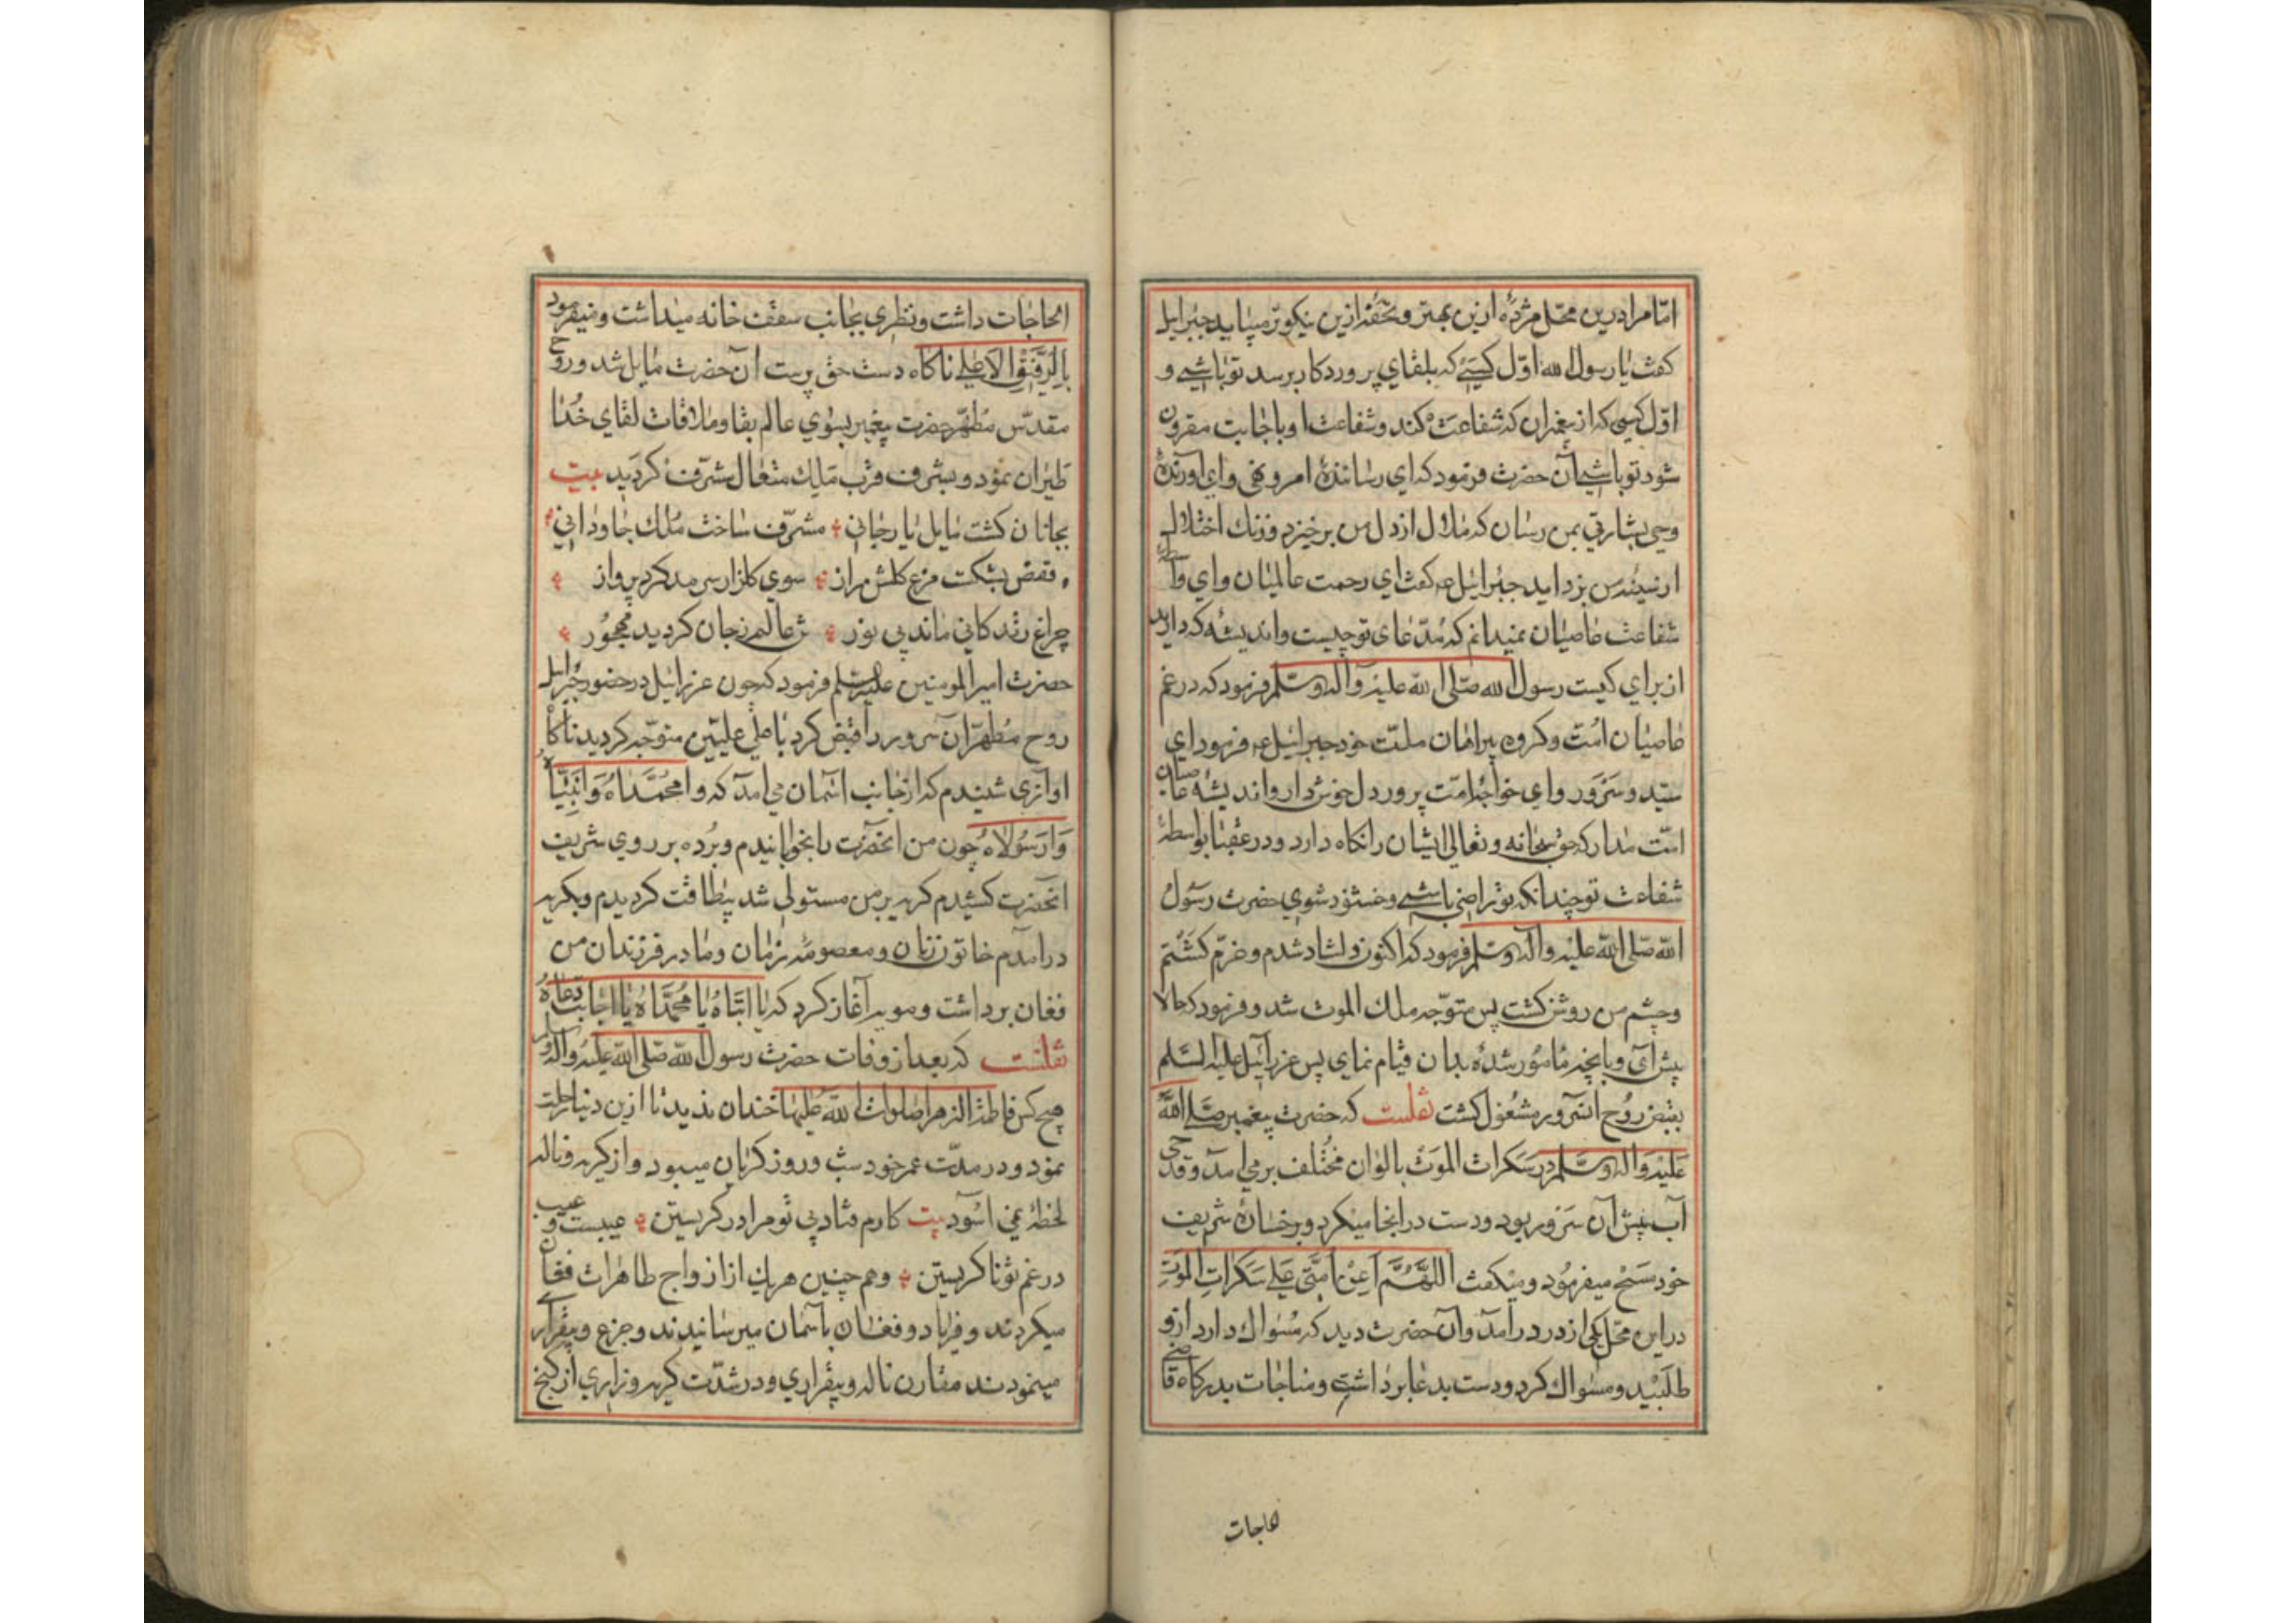 امّا مرا درین محّل مژدهٔ ازین بهتر و تحفهٔ ازین نیکوتر میباید جبرایل
کفت یا رسول الله اوّل کسیئے که بلقای پروردکار برسد تو باشیے و
اوّل کسی که از پیغمبران که شفاعت کند و شفاعت او باجابت مقرون
شود تو باشیے آن حضرت فرمود که ای رسانندهٔ امر و نهی و ای آورندهٔ
وحی بشارتی بمن رسان که ملال از دل من برخیزد و زنك اختلال
از سینهٔ من بزداید جبرائیل عه کفت ای رحمت عالمیان و ای
شفاعت عاصیان نمیدانم که مدّعای تو چیست و اندیشه که دارید
از برای کیست رسول الله صلّی الله علیه وآله وسلّم فرمود که در غم
عاصیان امّت و کروه بیراهان ملّت خود جبرائیل عه فرمود ای
سیّد و سرور و ای خواجهٔ امّت پرور دل خوش دار و اندیشه عاصیان
امّت مدار که حق سبحانه وتعالی ایشان را نکاه دارد و در عقبا بواسطهٔ
شفاعت تو چندانکه تو راضی باشیے و خشنود شوی حضرت رسول
الله صلّی الله علیه وآله وسلم فرمود که اکنون دلشاد شدم و خرّم کشتم
و چشم من روشن کشت پس متوّجه ملك الموت شد و فرمود که حالا
پیش آی و بانچه مامور شدهٔ بدان قیام نمای پس عزرائیل علیه السّلم
بقبض روح انسرور مشغول کشت نقلست که حضرت پیغمبر صلّی الله
علیه وآله وسلّم در سکرات الموت بالوان مختلف بر می امد و قدحی
آب پیش آن سرور بود و دست در انجا میکرد و برخسارهٔ شریف
خود مسح میفرمود و میکفت اللّهمّ اعن امّتی علی سکرات الموت
در این محّل یکی از در درآمد وآن حضرت دید که مسواك دارد از و
طلبید و مسواك کرد و دست بدعا برداشت و مناجات بدرکاه قاضی
الحاجات
الحاجات داشت و نظری بجانب سقف خانه میداشت و میفرمود
بالرّفیق الاعلی ناکاه دست حق پرست آن حضرت مایل شد و روح
مقدّس مطهّر حضرت پیغمبر بسوی عالم بقا و ملاقات لقای خدا
طیران نمود و بشرف قرب مالك متعال مشرّف کردید بیت
بجانان کشت مایل یار جانی مشرّف ساخت ملك جاودانی
قفص بشکست مرغ کلشن راز سوی کلزار سرمد کرد پرواز
چراغ زندکانی ماند بی نور تن عالم زجان کردید مهجور
حضرت امیرالمومنین علیه السلم فرمود که چون عزرائیل در حضور جبرایل
روح مطهّر آن سرور را قبض کرد باعلی علیّین متوّجه کردید ناکاه
اوازی شنیدم که از جانب اسمان می امد که وا محمّداه وا نبیّاه
وا رسولاه چون من انحضرت را بخوابانیدم و برده بر روی شریف
انحضرت کشیدم کریه بر من مستولی شد بیطاقت کردیدم و بکریه
درامدم خاتون زنان و معصومهٔ زمان و مادر فرزندان من
فغان برداشت و مویه آغاز کرد که یا ابتاه یا محمّداه یا اجابت دعاه
نقلست که بعد از وفات حضرت رسول الله صلّی الله علیه وآله وسلم
هیچ کس فاطمة الزهرا صلوات الله علیها خندان ندید تا ازین دنیا رحلت
نمود و در مدّت عمر خود شب و روز کریان میبود و از کریه و ناله
لحظهٔ نمی اسود بیت کارم فتاد بی تو مرا در کریستن عیبست و عیب
در غم تو نا کریستن وهم چنین هریك از ازواج طاهرات فغان
میکردند و فریاد و فغان باسمان میرسانیدند و جزع و بیقراری
مینمودند مقارن ناله و بیقراری و در شدّت کریه و زاری از کنج